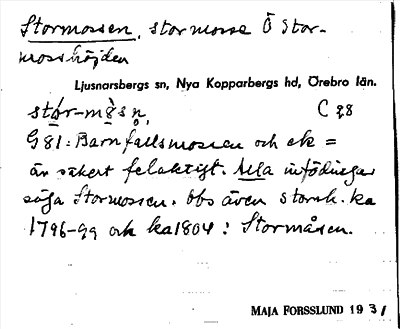 Stormossen, stor mosse Ö Stor-
mosshöjden
Ljusnarsbergs sn, Nya Kopparbergs hd, Örebro län.
stór-mòsn, C 98
G 81: Barnfallsmossen och ek =
är säkert felaktigt. Alla infödingar
säga Stormossen. Obs även storsk. ka
1796-99 och ka 1804: Stormåsen.
MAJA FORSSLUND 1931